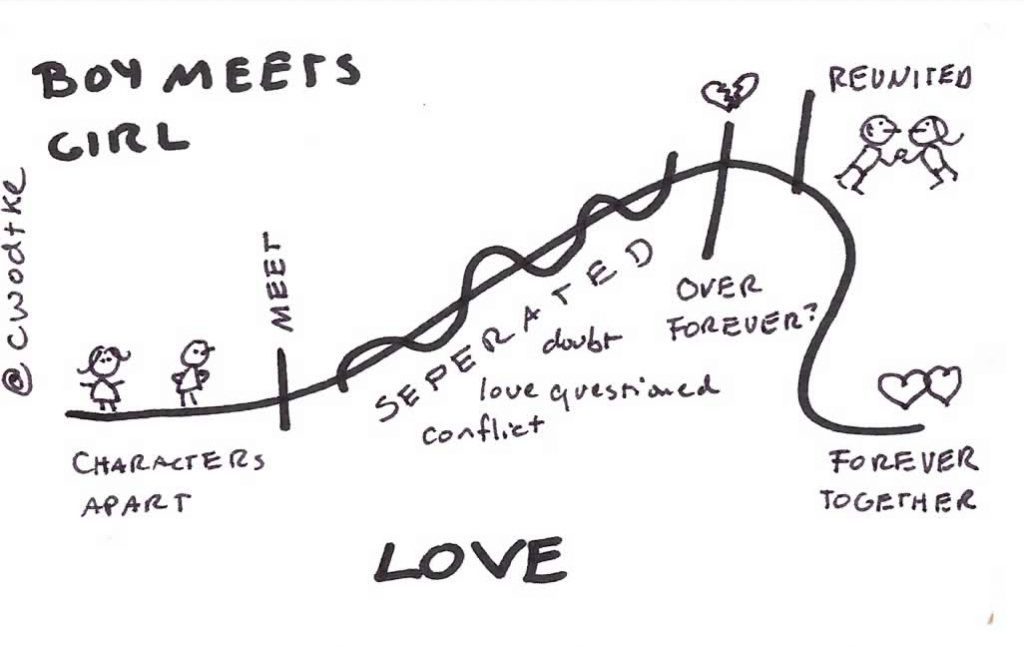 BOY MEETS
GIRL
@cwodtke
MEET
CHARACTERS
APART
SEPERATED
doubt
love questioned
conflict
OVER
FOREVER?
REUNITED
FOREVER
TOGETHER
LOVE